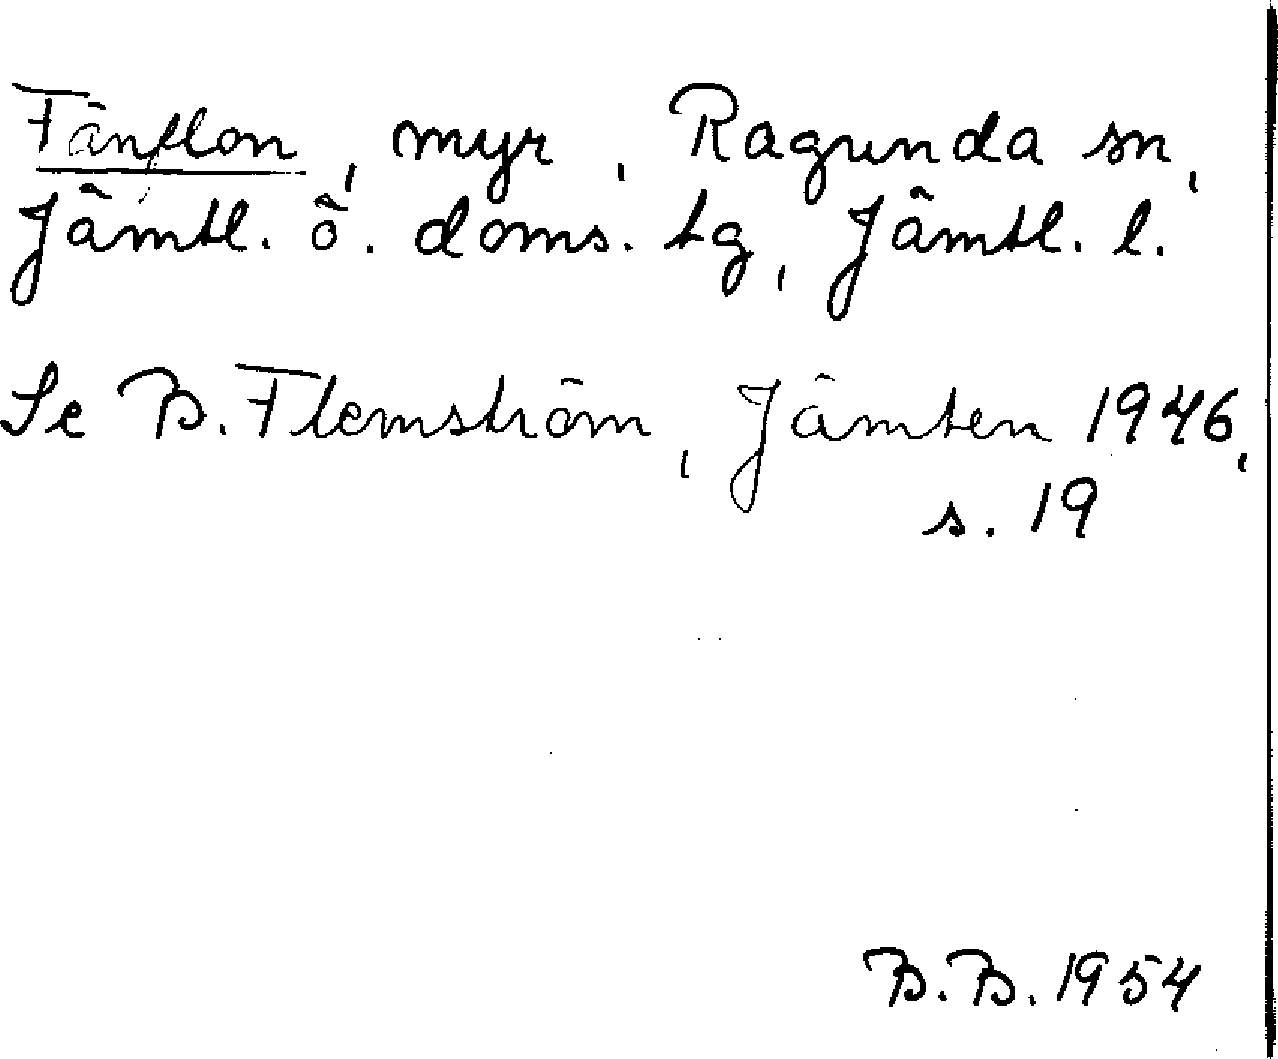 Fänflon, myr, Ragunda sn,
Jämtl. ö. doms. tg, Jämtl. l.
Se B. Flemström, Jämten 1946,
s. 19
B.B. 1954